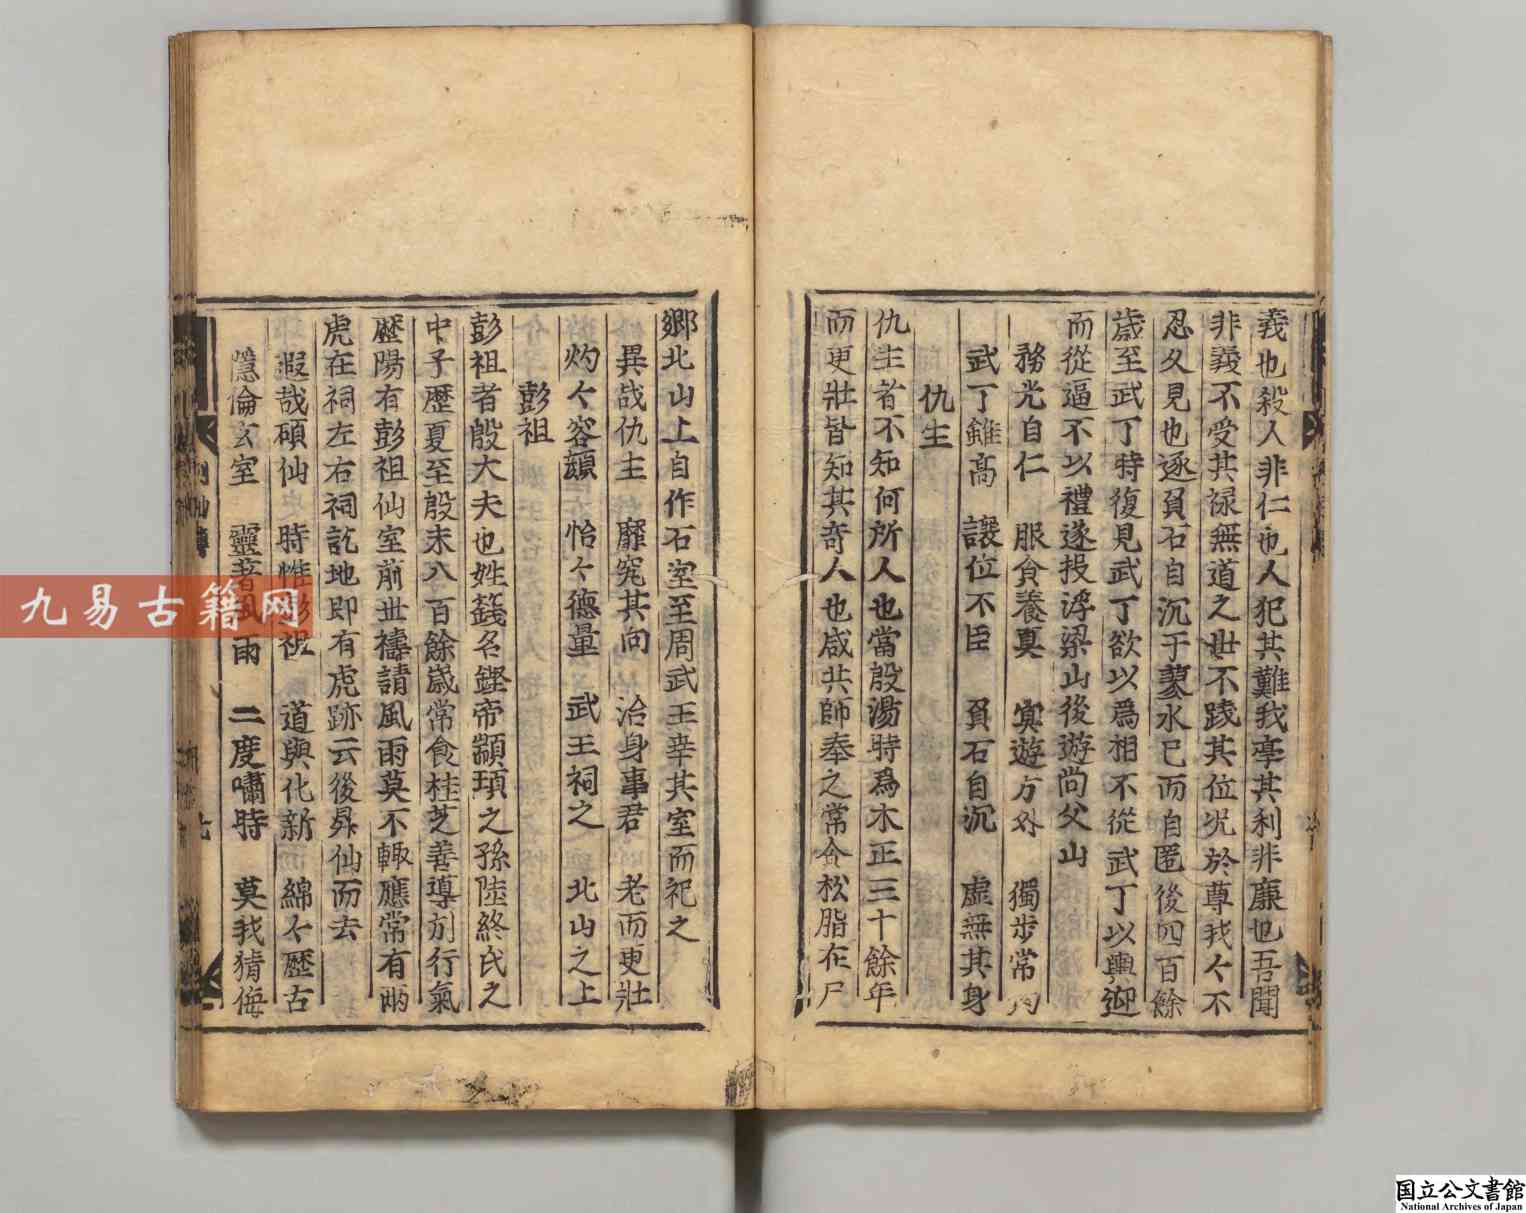 義也殺人非仁也人犯其難我享其利非廉也吾聞
非義不受其祿無道之世不踐其位況於尊我々不
忍久見也遂負石自沉于蓼水已而自匿後四百餘
歲至武丁時復見武丁欲以為相不從武丁以輿迎
而從逼不以禮遂投浮梁山後遊尚父山
務光自仁　服食養真　冥遊方外　獨步常均
武丁雖高　讓位不臣　負石自沉　虛無其身
仇生
仇生者不知何所人也當殷湯時為木正三十餘年
而更壯皆知其奇人也咸共師奉之常食松脂在尸
鄉北山上自作石室至周武王幸其室而祀之
異哉仇生　靡究其向　治身事君　老而更壯
灼々容顏　怡々德量　武王祠之　北山之上
彭祖
彭祖者殷大夫也姓籛名鏗帝顓頊之孫陸終氏之
中子歷夏至殷末八百餘歲常食桂芝善導引行氣
歷陽有彭祖仙室前世禱請風雨莫不輒應常有兩
虎在祠左右祠訖地即有虎跡云後昇仙而去
遐哉碩仙　時惟彭祖　道與化新　綿々歷古
隱倫玄室　靈著風雨　二虎嘯時　莫我猜侮
列仙傳
七
九易古籍网
国立公文書館
National Archives of Japan